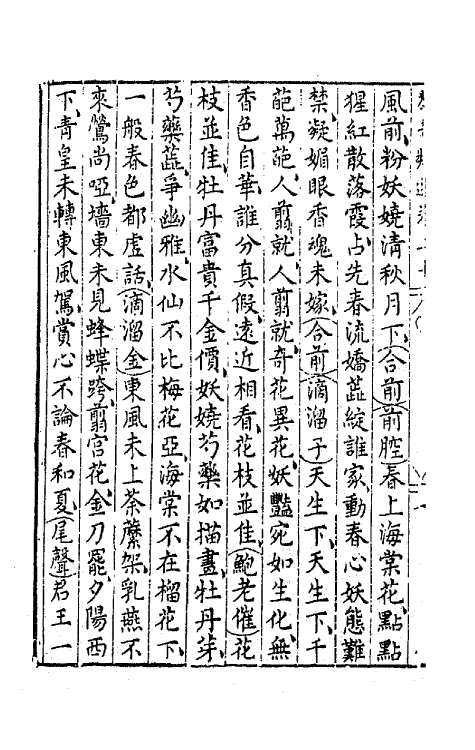 風前粉妖嬈清秋月下合前前腔春上海棠花點點
猩紅散落霞占先春流嬌蕋綻誰家動春心妖態難
禁凝媚眼香魂未嫁合前滴溜子天生下天生下千
葩萬葩人翦就人翦就奇花異花妖豔宛如生化無
香色自華誰分真假遠近相看花枝並佳鮑老催花
枝並佳牡丹富貴千金價妖嬈芍藥如描畫牡丹芽
芍藥蕋爭幽雅水仙不比梅花亞海棠不在榴花下
一般春色都虛話滴溜金東風未上荼䕷架乳燕不
來鶯尚啞墻東未見蜂蝶跨翦宮花金刀罷夕陽西
下青皇未轉東風駕賞心不論春和夏尾聲君王一